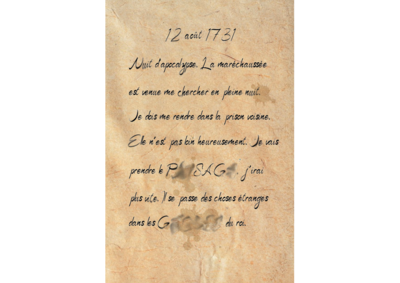 12 août 1731
Nuit d'apocalypse. La maréchaussée
est venue me chercher en pleine nuit.
Je dois me rendre dans la prison voisine.
Elle n'est pas loin heureusement. Je vais
prendre le j'irai
plus vite. Il se passe des choses étranges
dans les du roi.